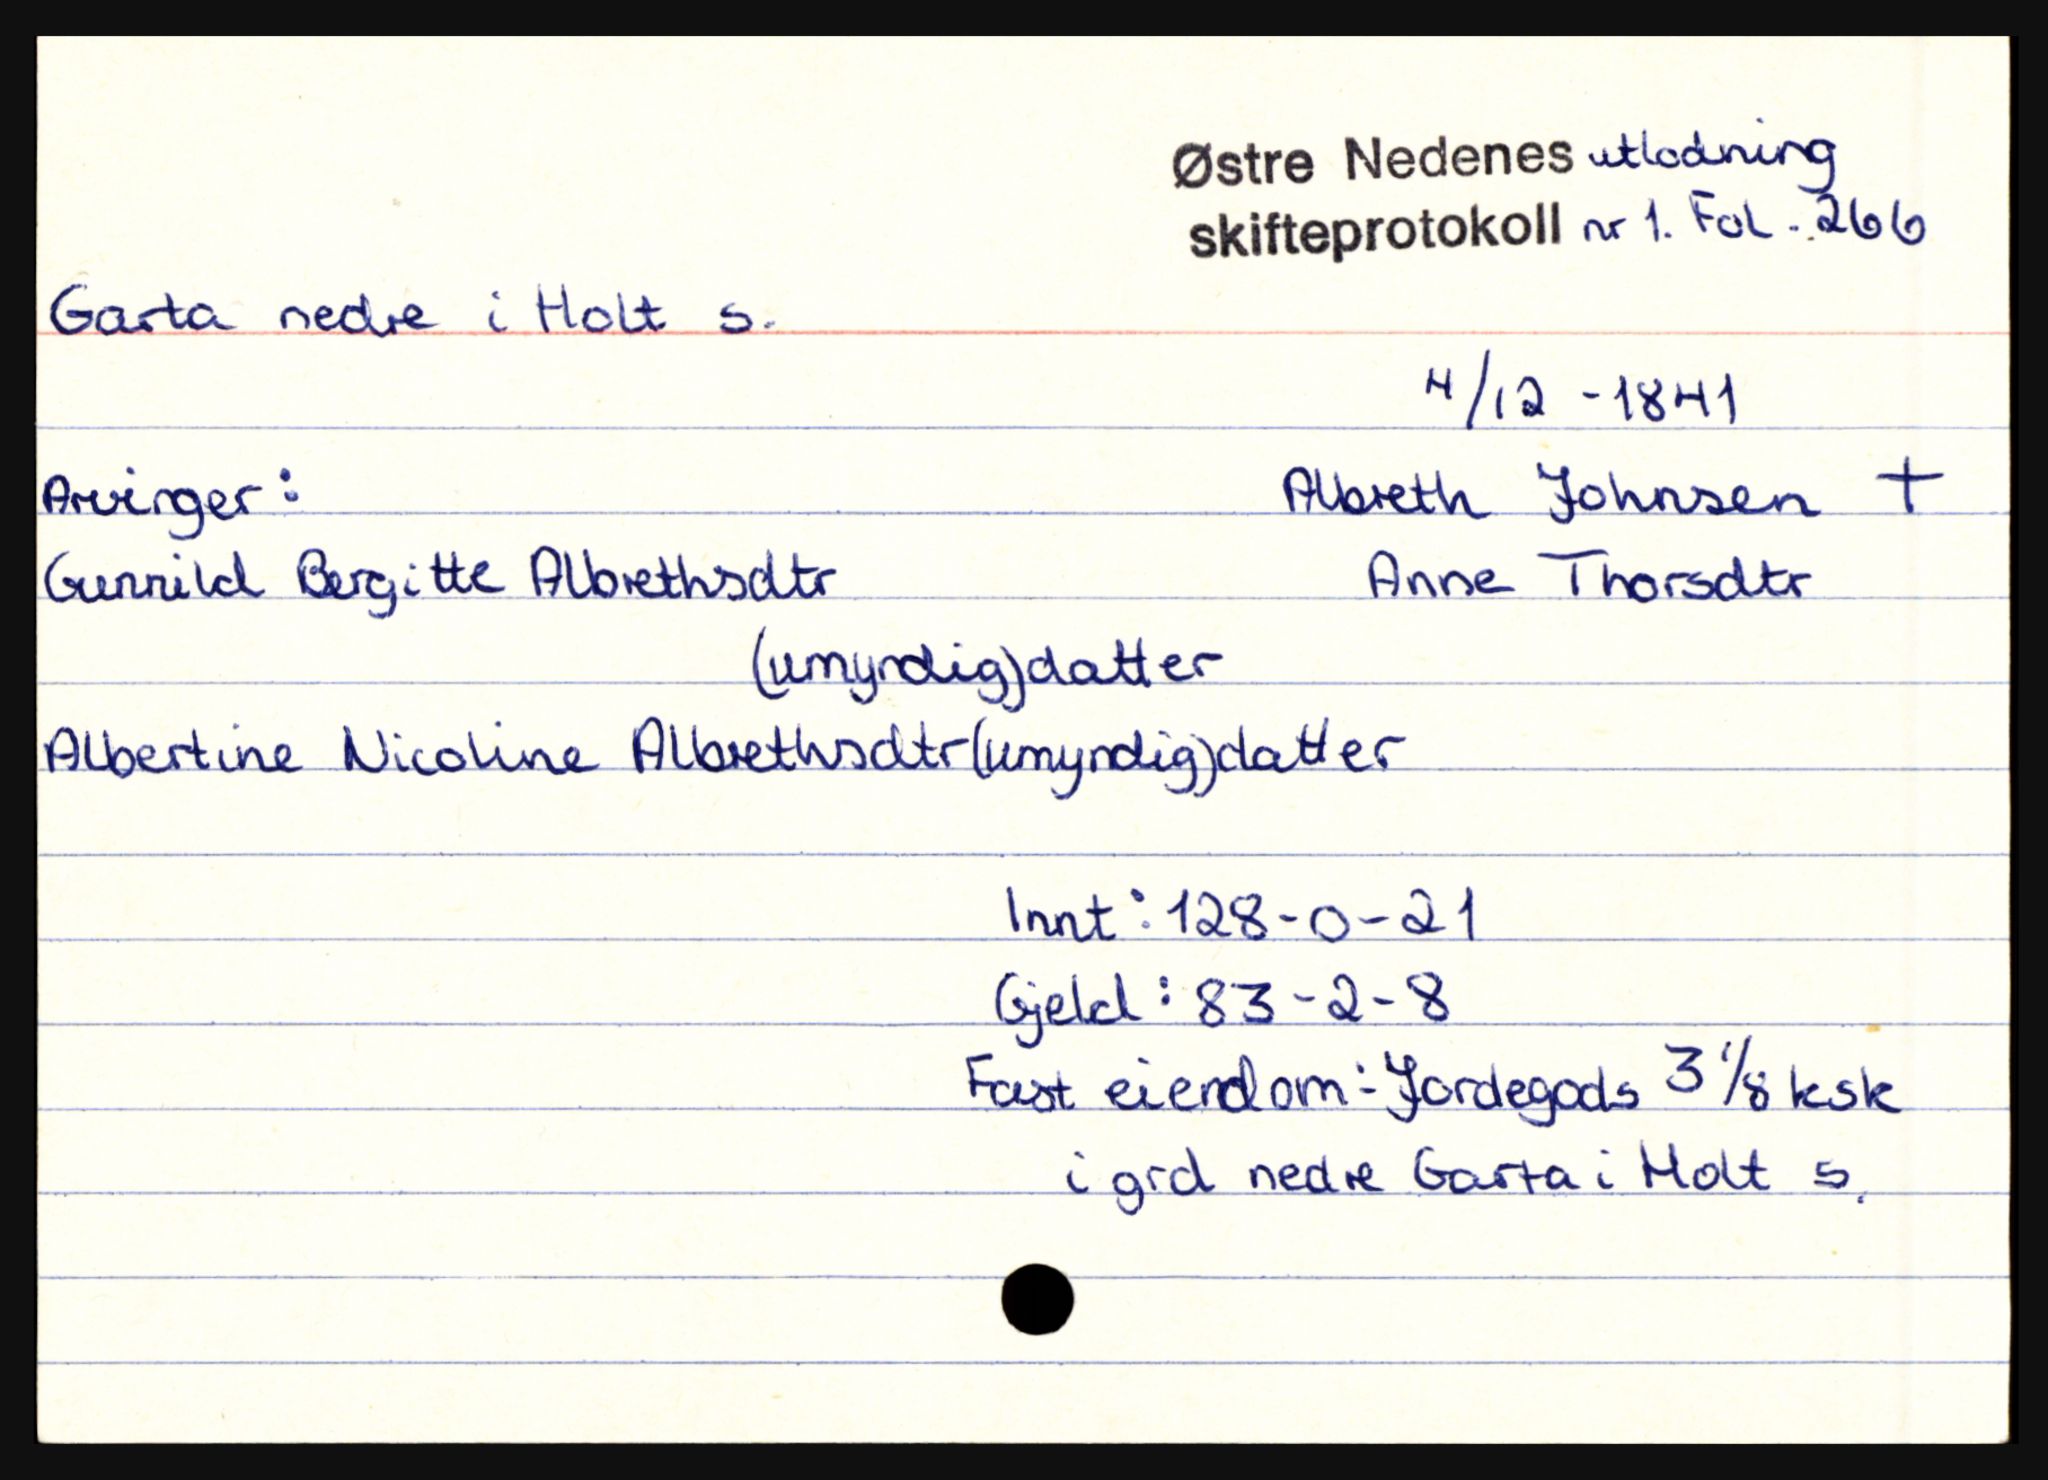 Østre Nedenes utlodning
skifteprotokoll nr 1. Fol. 266
Garta nedre i Holt s.
4/12 - 1841
Arvinger: Albreth Johnsen +
Gunnild Bergitte Albrethsdtr Anne Thorsdtr
(umyndig) datter
Albertine Nicoline Albrethsdtr (umyndig) datter
Innt: 128-0-21
Gjeld: 83-2-8
Fast eiendom: Jordegods 3 1/8 ksk
i grd nedre Garta i Holt s.